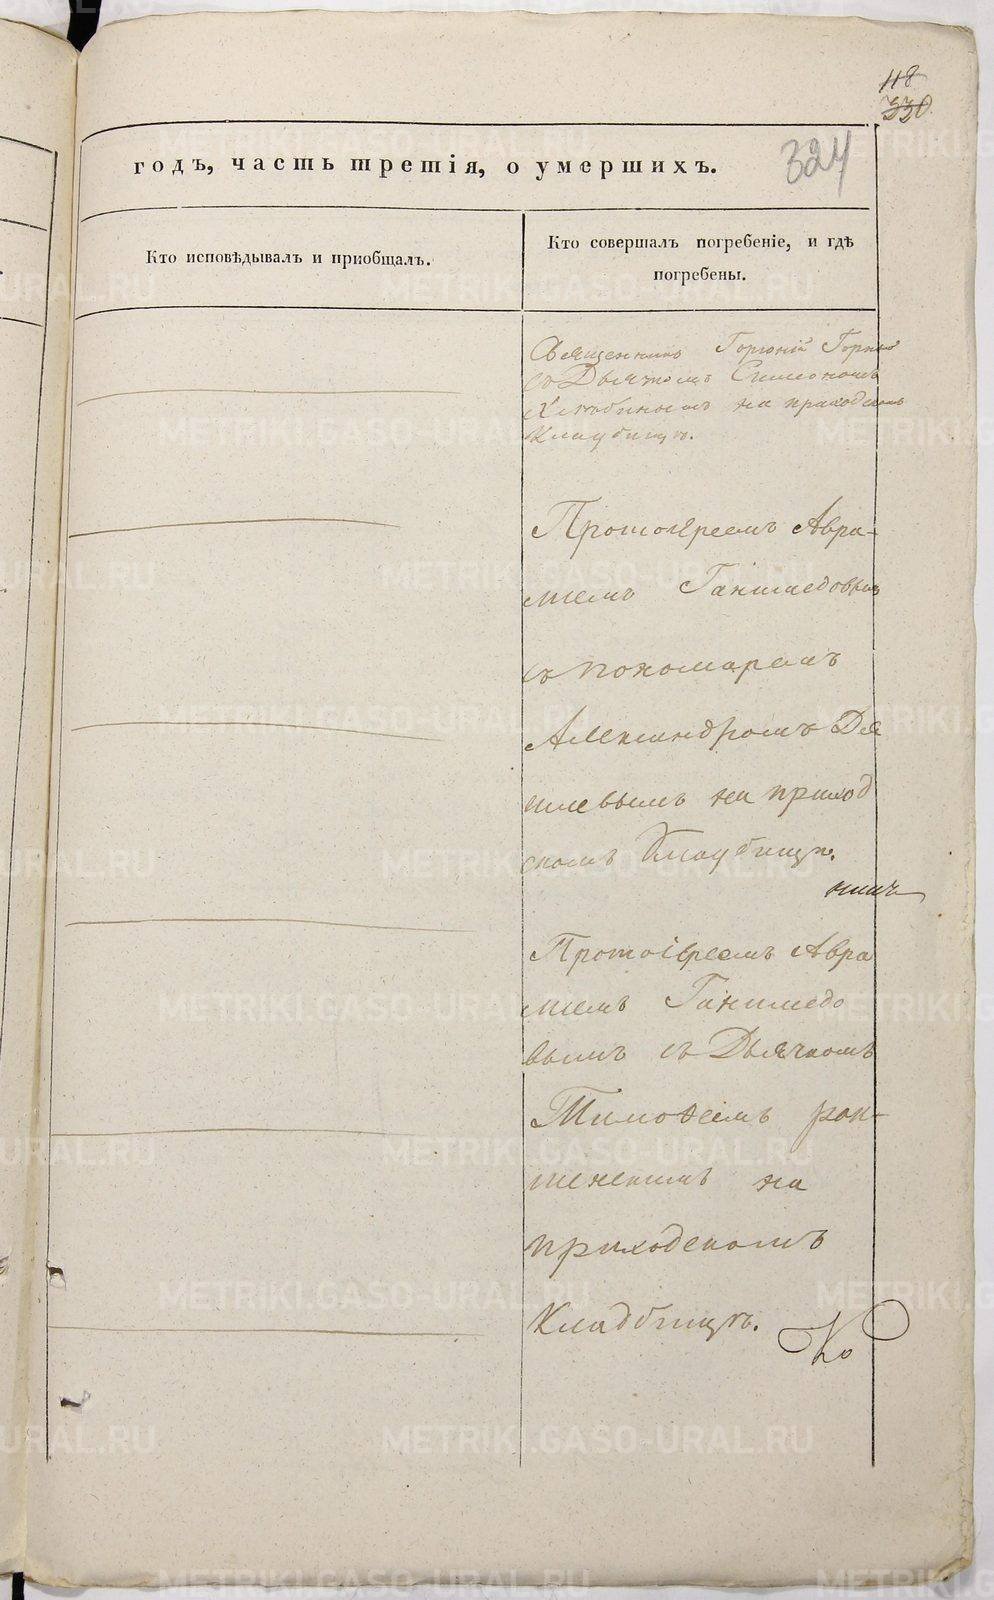 118
330
324
годъ, часть третія, о умершихъ.
Кто исповѣдывалъ и приобщалъ.
Кто совершалъ погребеніе, и гдѣ
погребены.
Священникъ Горгоній
съ Дьячкомъ Симеономъ
на приходскомъ
Кладбищѣ.
Протоіереемъ Авра-
міемъ Ганимедовымъ
съ пономаремъ
Александромъ Дя
гилевымъ на приход
скомъ Кладбищѣ.
Протоіереемъ Авра
міемъ Ганимедо
вымъ съ Дьячкомъ
Тимофеемъ
на
приходскомъ
Кладбищѣ.
Ко
METRIKI.GASO-URAL.RU